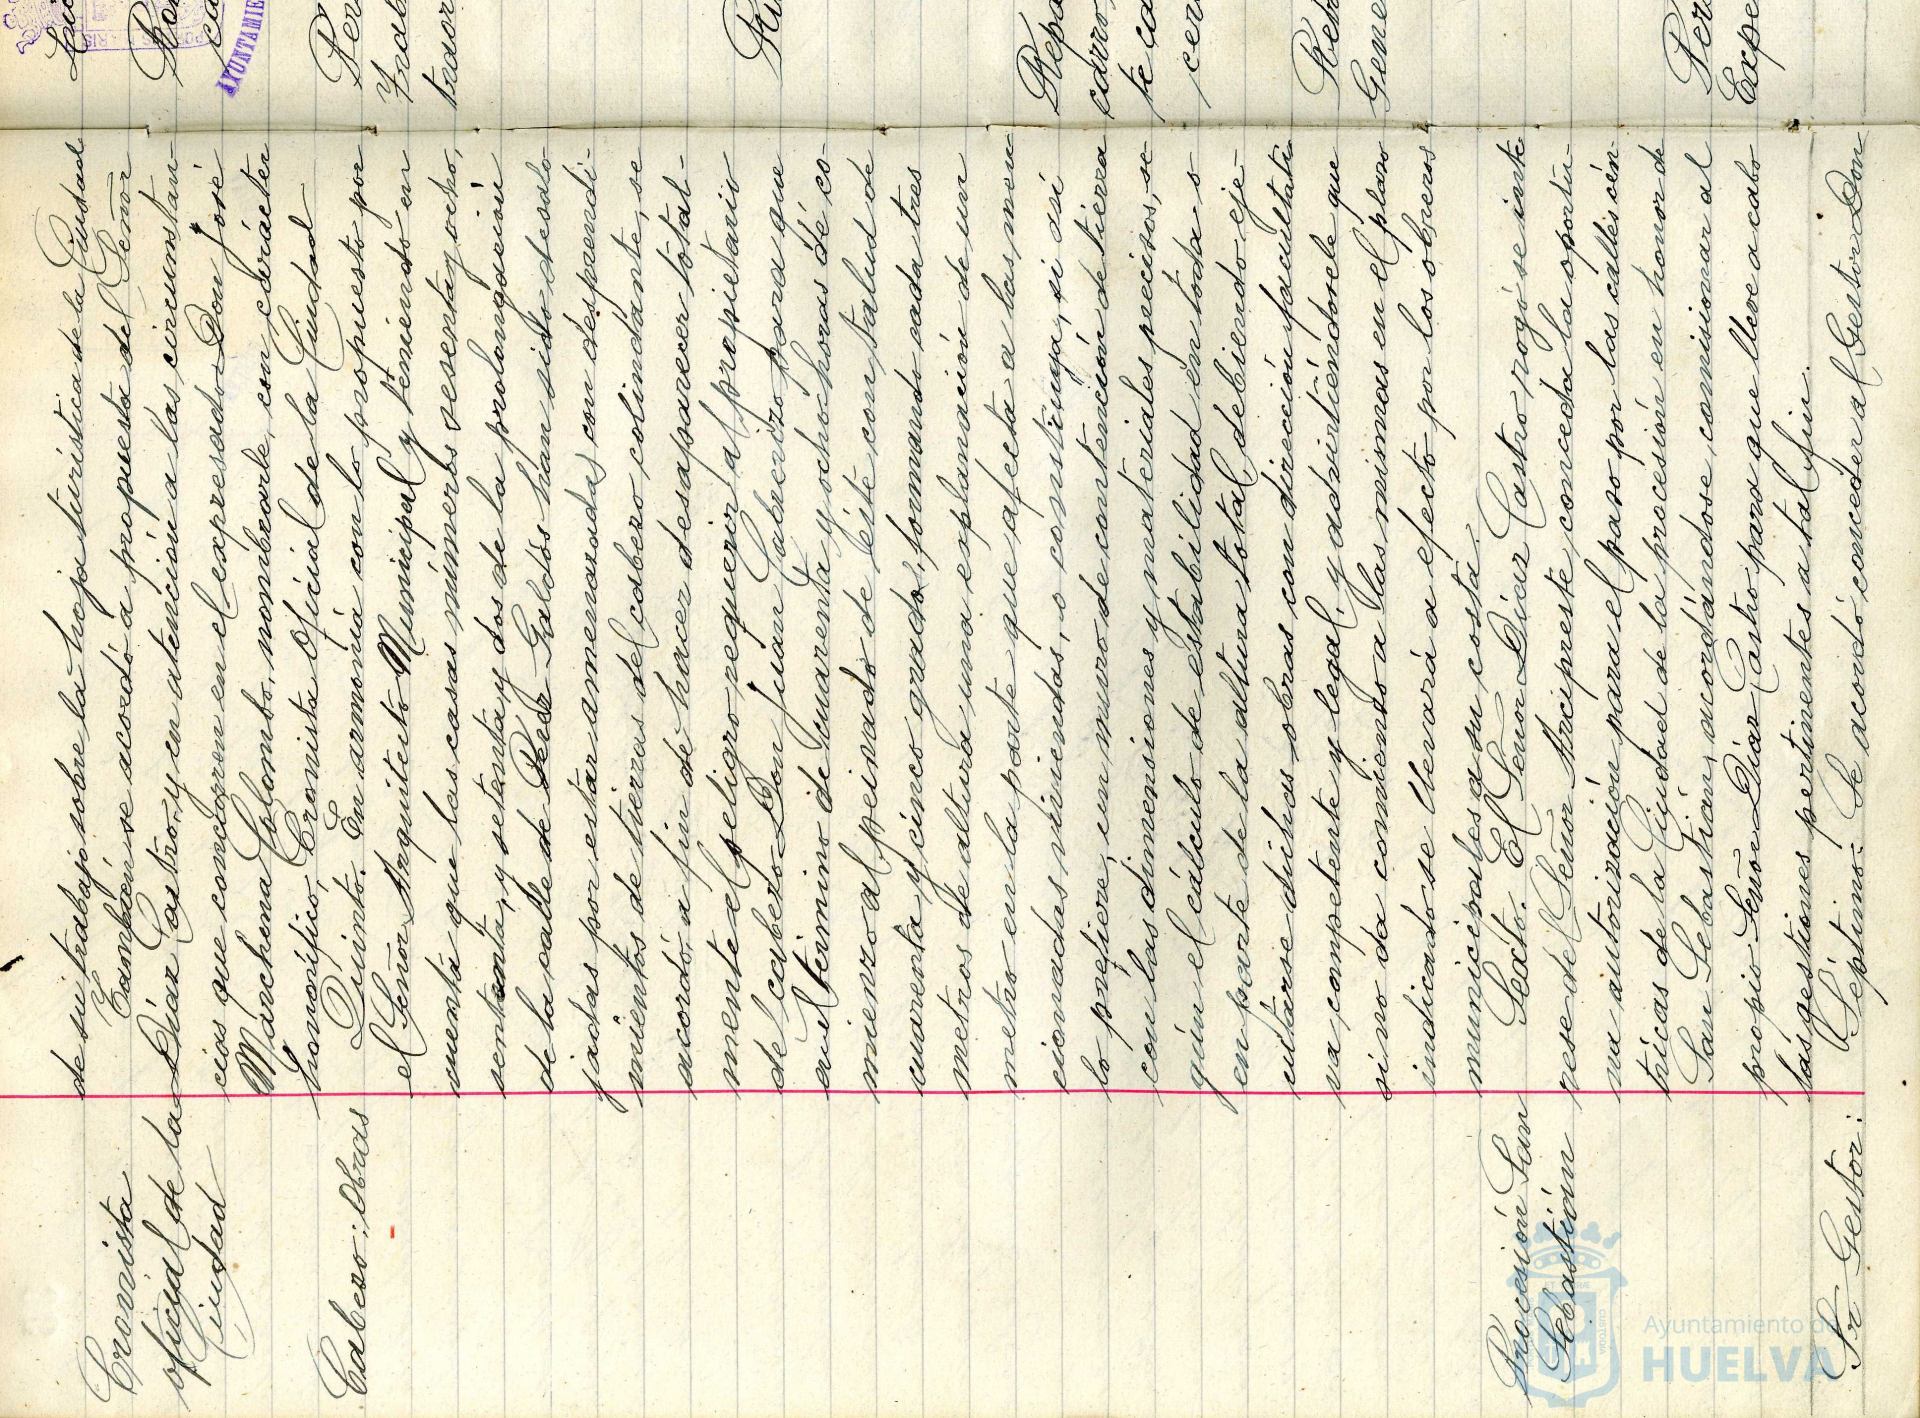 Cronista
oficial de la
Ciudad
Cabezo: Obras
Procesión San
Sebastián
Sr. Gestor:
de su trabajo sobre la hoja turística de la Ciudad
También se acordó a propuesta del Señor
Díaz Castro, y en atención a las circunstan-
cias que concurren en el expresado Don José
Manchena Colombo, nombrarle, con carácter
honorífico, Cronista Oficial de la Ciudad
Quinto. En armonía con lo propuesto por
el Señor Arquitecto Municipal y teniendo en
cuenta que las casas números sesenta y ocho,
setenta, y setenta y dos de la prolongación
de la calle de Perez Galdós han sido desalo-
jadas por estar amenazadas con desprendi-
mientos de tierras del cabezo colindante, se
acordó, a fin de hacer desaparecer total-
mente el peligro requerir al propietario
del cabezo Don Juan Cabezizo para que
en el término de cuarenta y ocho horas dé co-
mienzo al peinado de éste con talud de
cuarenta y cinco grados, formando cada tres
metros de altura una explanación de un
metro en la parte que afecta a las men
cionadas viviendas, o construya, si así
lo prefiere, un muro de contención de tierra
con las dimensiones y materiales precisos, se
gún el cálculo de estabilidad en toda o
en parte de la altura total, debiendo eje-
cutarse dichas obras con dirección facultati
va competente y legal, y advirtiéndosele que
si no da comienzo a las mismas en el plazo
indicado se llevará a efecto por los obreros
municipales a su costa.
Sexto. El Señor Díaz Castro rogó se inte
rese del Señor Arcipreste conceda la oportu-
na autorización para el paso por las calles cén-
tricas de la Ciudad de la procesión en honor de
San Sebastián, acordándose comisionar al
propio Señor Díaz Castro para que lleve a cabo
las gestiones pertinentes a tal fin.
Séptimo: Se acordó conceder al Gestor Don
Repa
carro,
te ca
cer
Gene
Per
Expe
AYUNTAMIE
Ayuntamiento de
HUELVA